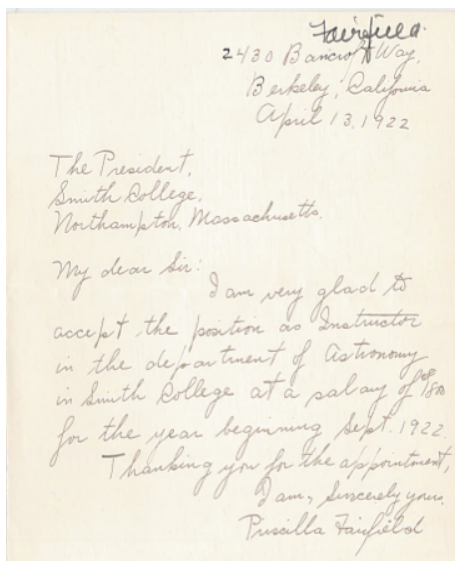 Fairfield.
2430 Bancroft Way,
Berkeley, California
April 13, 1922
The President,
Smith College,
Northampton, Massachusetts.
My dear Sir:
I am very glad to
accept the position as Instructor
in the department of Astronomy
in Smith College at a salary of $1800
for the year beginning Sept. 1922.
Thanking you for the appointment,
I am, Sincerely yours,
Priscilla Fairfield